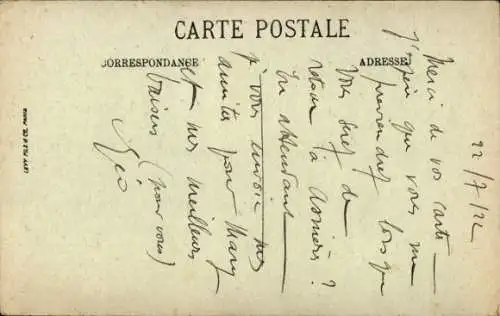 CARTE POSTALE
CORRESPONDANCE
ADRESSE
22/7/22
Merci de vos cartes
J'espère que vous me
préviendrez lorsque
vous serez de
retour à Asnières ?
En attendant
je vous envoie mes
amitiés pour Mary
et mes meilleurs
baisers (pour vous)
Géo